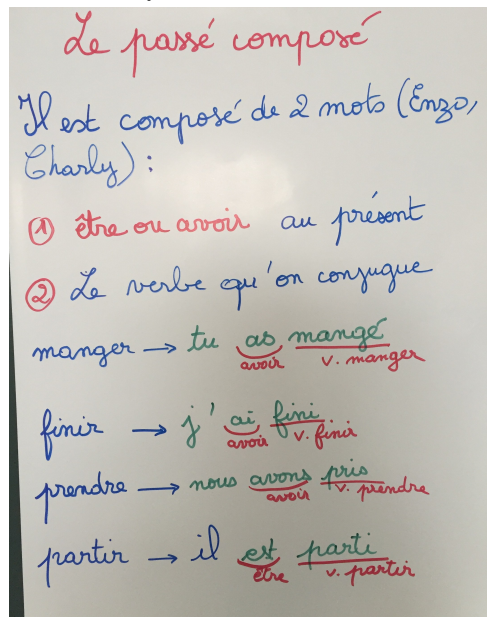 Le passé composé
Il est composé de 2 mots (Enzo,
Charly) :
1 être ou avoir au présent
2 Le verbe qu'on conjugue
manger → tu as mangé
avoir v. manger
finir → j'ai fini
avoir v. finir
prendre → nous avons pris
avoir v. prendre
partir → il est parti
être v. partir